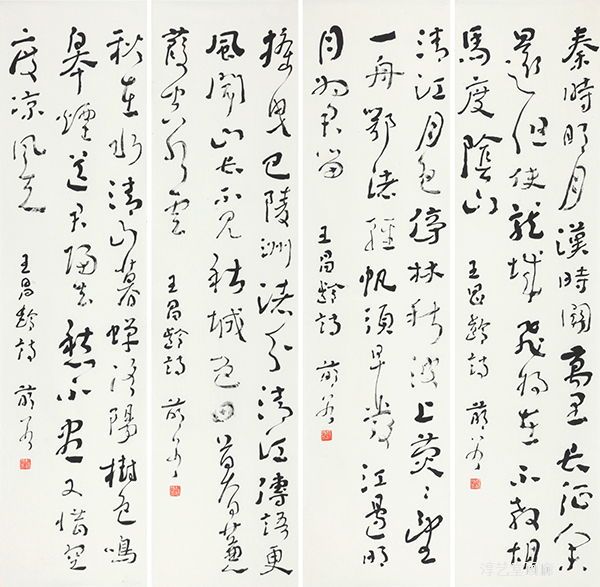 秦時明月漢時關萬里長征人未
還但使龍城飛將在不教胡
馬度陰山 王昌齡詩
清江月色傍林秋波上熒々望
一舟鄂渚輕帆須早發江邊明
月为君留 王昌齡詩
搖曳巴陵洲渚分清江傳語便
風聞山長不見秋城色日暮蒹
葭空水雲 王昌齡詩
秋在水清山暮蟬洛陽樹色鳴
皋煙送君歸去愁不盡又惜空
度涼風天 王昌齡詩
淳艺堂画廊